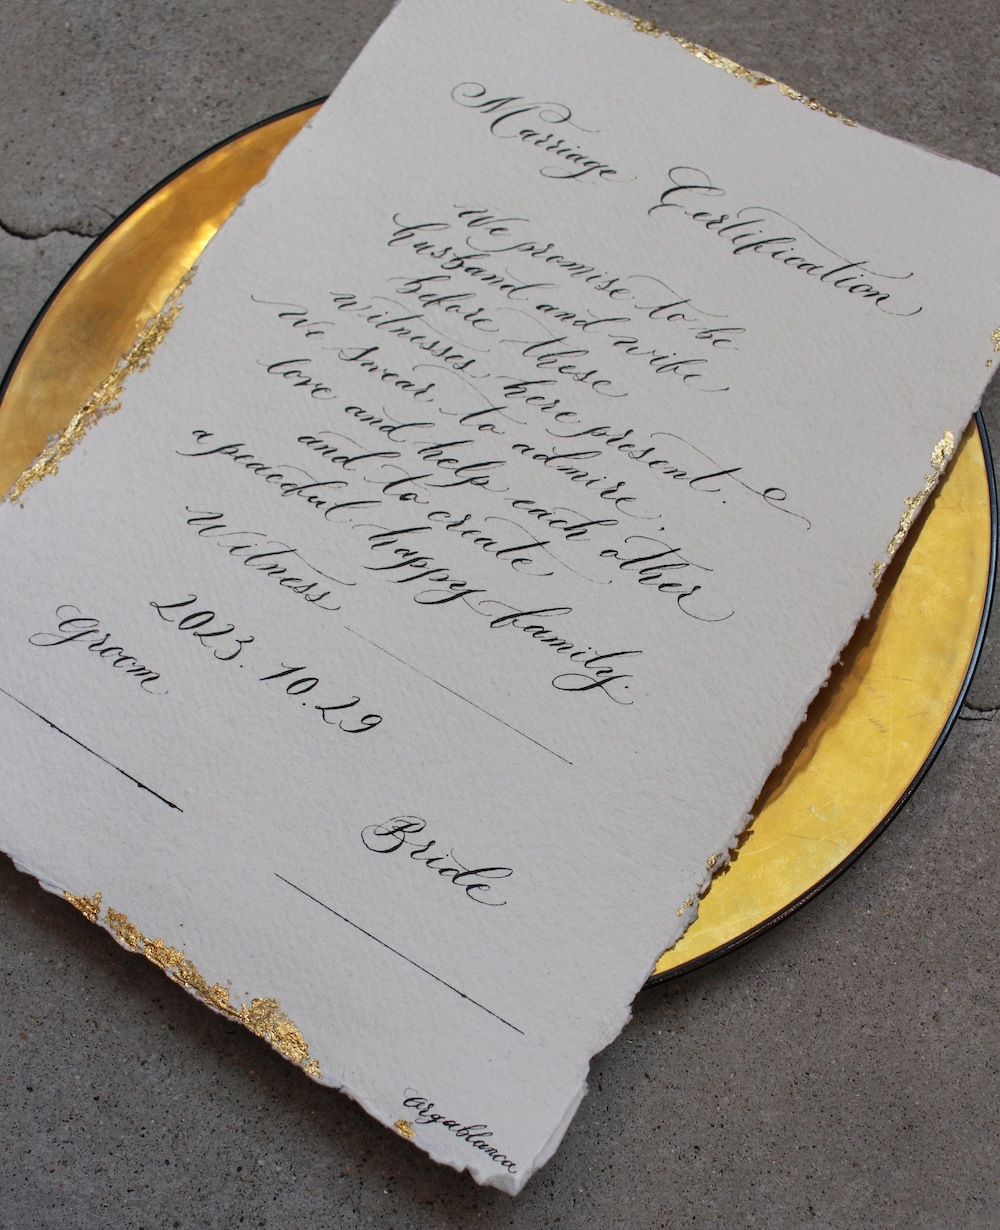 Marriage Certification
We promise to be
husband and wife
before these
witnesses here present.
We swear to admire,
love and help each other
and to create
a peaceful happy family.
Witness
2023.10.29
Groom
Bride
Orgablanca